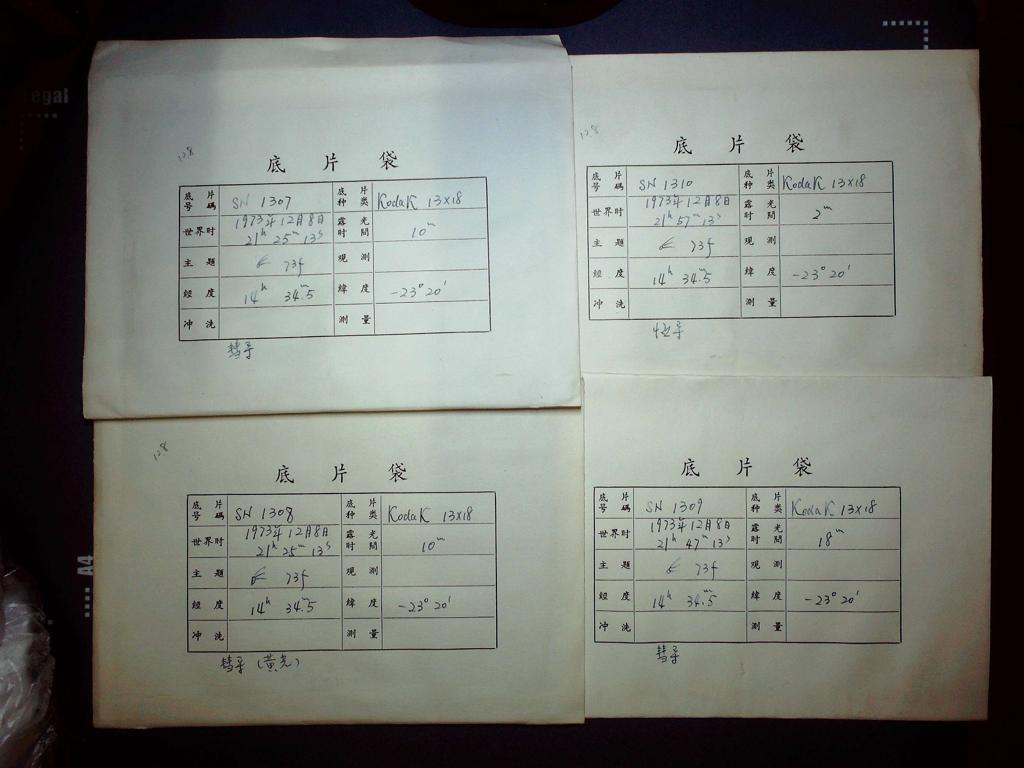 egal
128
底 片 袋
底片号碼 SN 1307 底片种类 Kodak 13×18
世界时 1973年12月8日 21ʰ 25ᵐ 13ˢ 露光时間 10ᵐ
主 题 73f 观 测
經 度 14ʰ 34ᵐ.5 緯 度 -23° 20'
冲 洗 測 量
彗寻
128
底 片 袋
底片号碼 SN 1310 底片种类 Kodak 13×18
世界时 1973年12月8日 21ʰ 57ᵐ 13ˢ 露光时間 2ᵐ
主 题 73f 观 測
經 度 14ʰ 34ᵐ.5 緯 度 -23° 20'
冲 洗 測 量
恒寻
128
底 片 袋
底片号碼 SN 1308 底片种类 Kodak 13×18
世界时 1973年12月8日 21ʰ 25ᵐ 13ˢ 露光时間 10ᵐ
主 题 73f 观 測
經 度 14ʰ 34ᵐ.5 緯 度 -23° 20'
冲 洗 測 量
彗寻 (黄光)
底 片 袋
底片号碼 SN 1309 底片种类 Kodak 13×18
世界时 1973年12月8日 21ʰ 47ᵐ 13ˢ 露光时間 18ᵐ
主 题 73f 观 測
經 度 14ʰ 34ᵐ.5 緯 度 -23° 20'
冲 洗 測 量
彗寻
A4